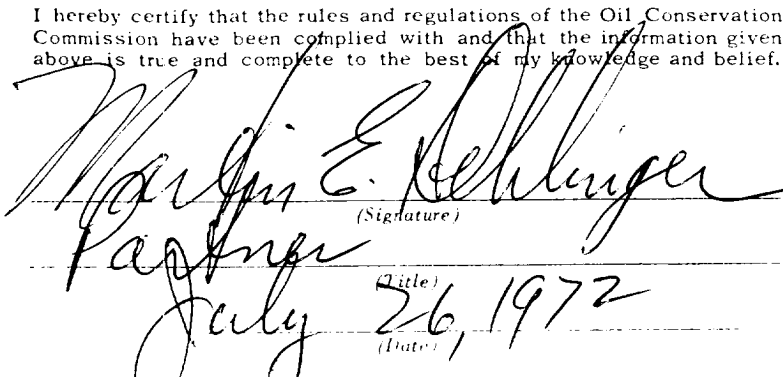 I hereby certify that the rules and regulations of the Oil Conservation
Commission have been complied with and that the information given
above is true and complete to the best of my knowledge and belief.
Martin E.
(Signature)
Partner
(Title)
July 26, 1972
(Date)